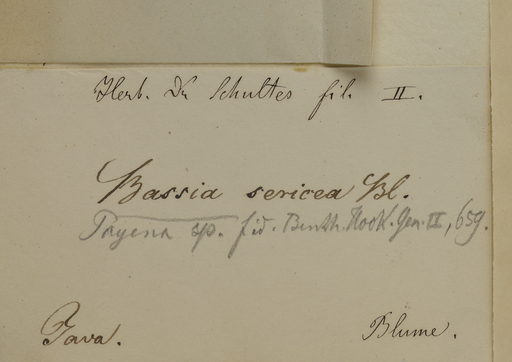 Herb. Dr Schultes fil. II.
Bassia sericea Bl.
Payena sp. fid. Benth. Hook. Gen. II, 659.
Java.
Blume.